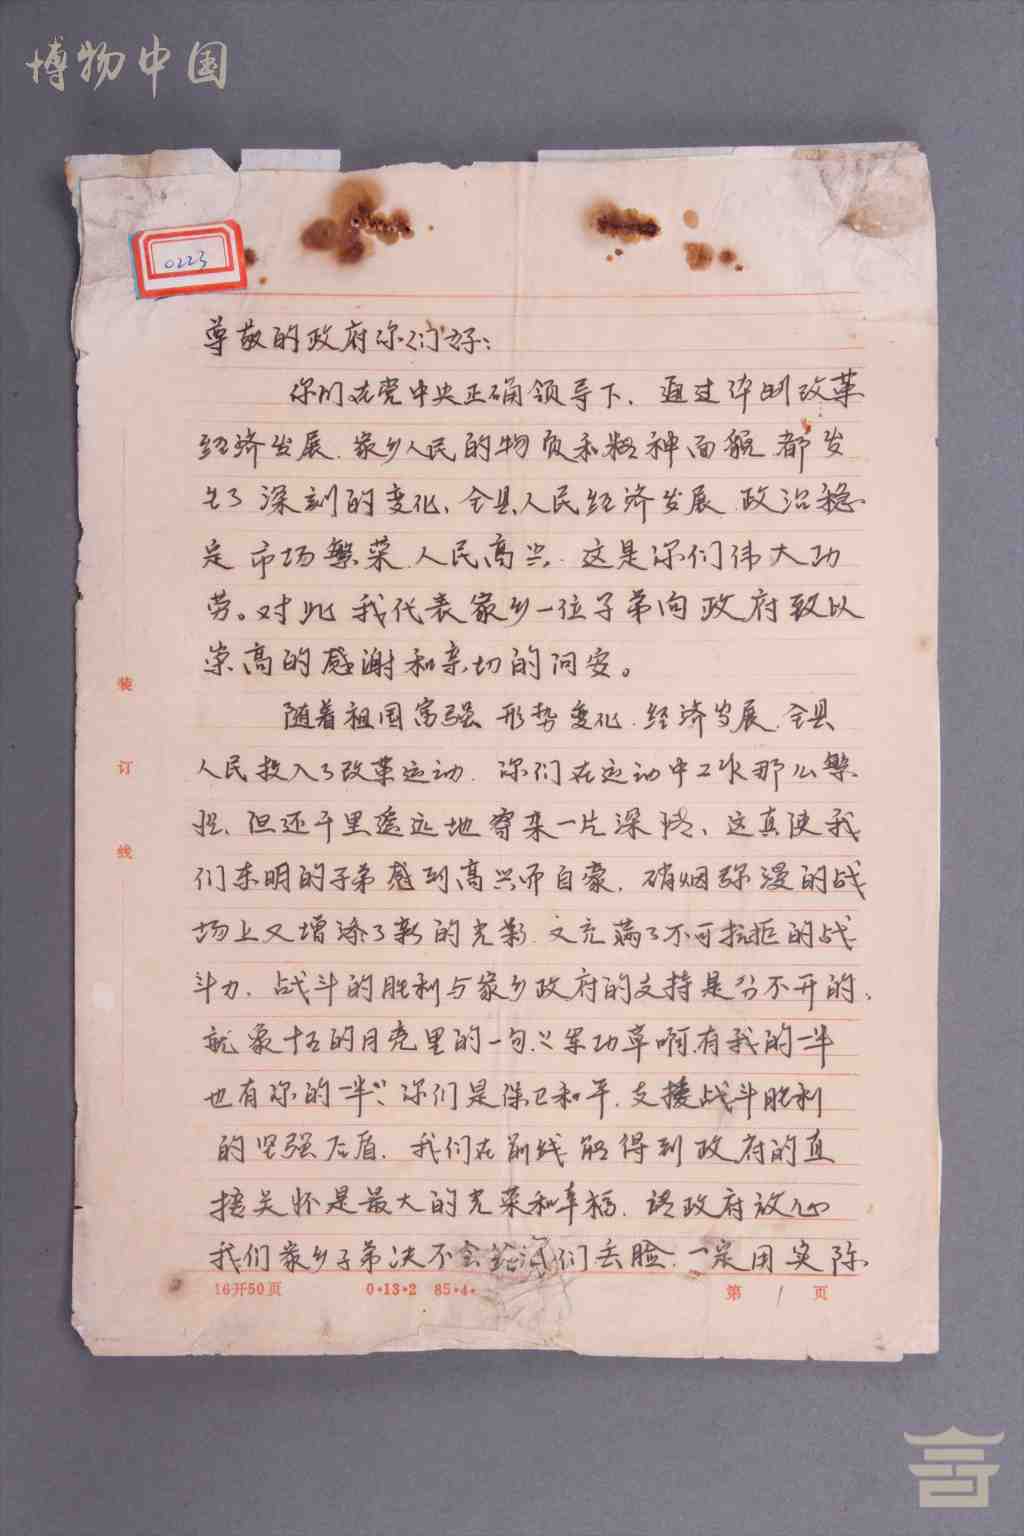 博物中国
0223
尊敬的政府你们好：
你们在党中央正确领导下，通过体制改革
经济发展，家乡人民的物质和精神面貌都发
生了深刻的变化，全县人民经济发展，政治稳
定市场繁荣，人民高兴，这是你们伟大功
劳。对此我代表家乡一位子弟向政府致以
崇高的感谢和亲切的问安。
随着祖国富强形势变化，经济发展，全县
人民投入了改革运动，你们在运动中工作那么繁
担，但还千里遥远地寄来一片深情，这真使我
们东明的子弟感到高兴而自豪，硝烟弥漫的战
场上又增添了新的光彩，又充满了不可抗拒的战
斗力，战斗的胜利与家乡政府的支持是分不开的，
就象十五的月亮里的一句"军功章啊有我的一半
也有你的一半"，你们是保卫和平，支援战斗胜利
的坚强后盾，我们在前线能得到政府的直
接关怀是最大的光荣和幸福，请政府放心
我们家乡子弟决不会给你们丢脸，一定用实际
装
订
线
16开50页 0·13·2 85·4· 第1页